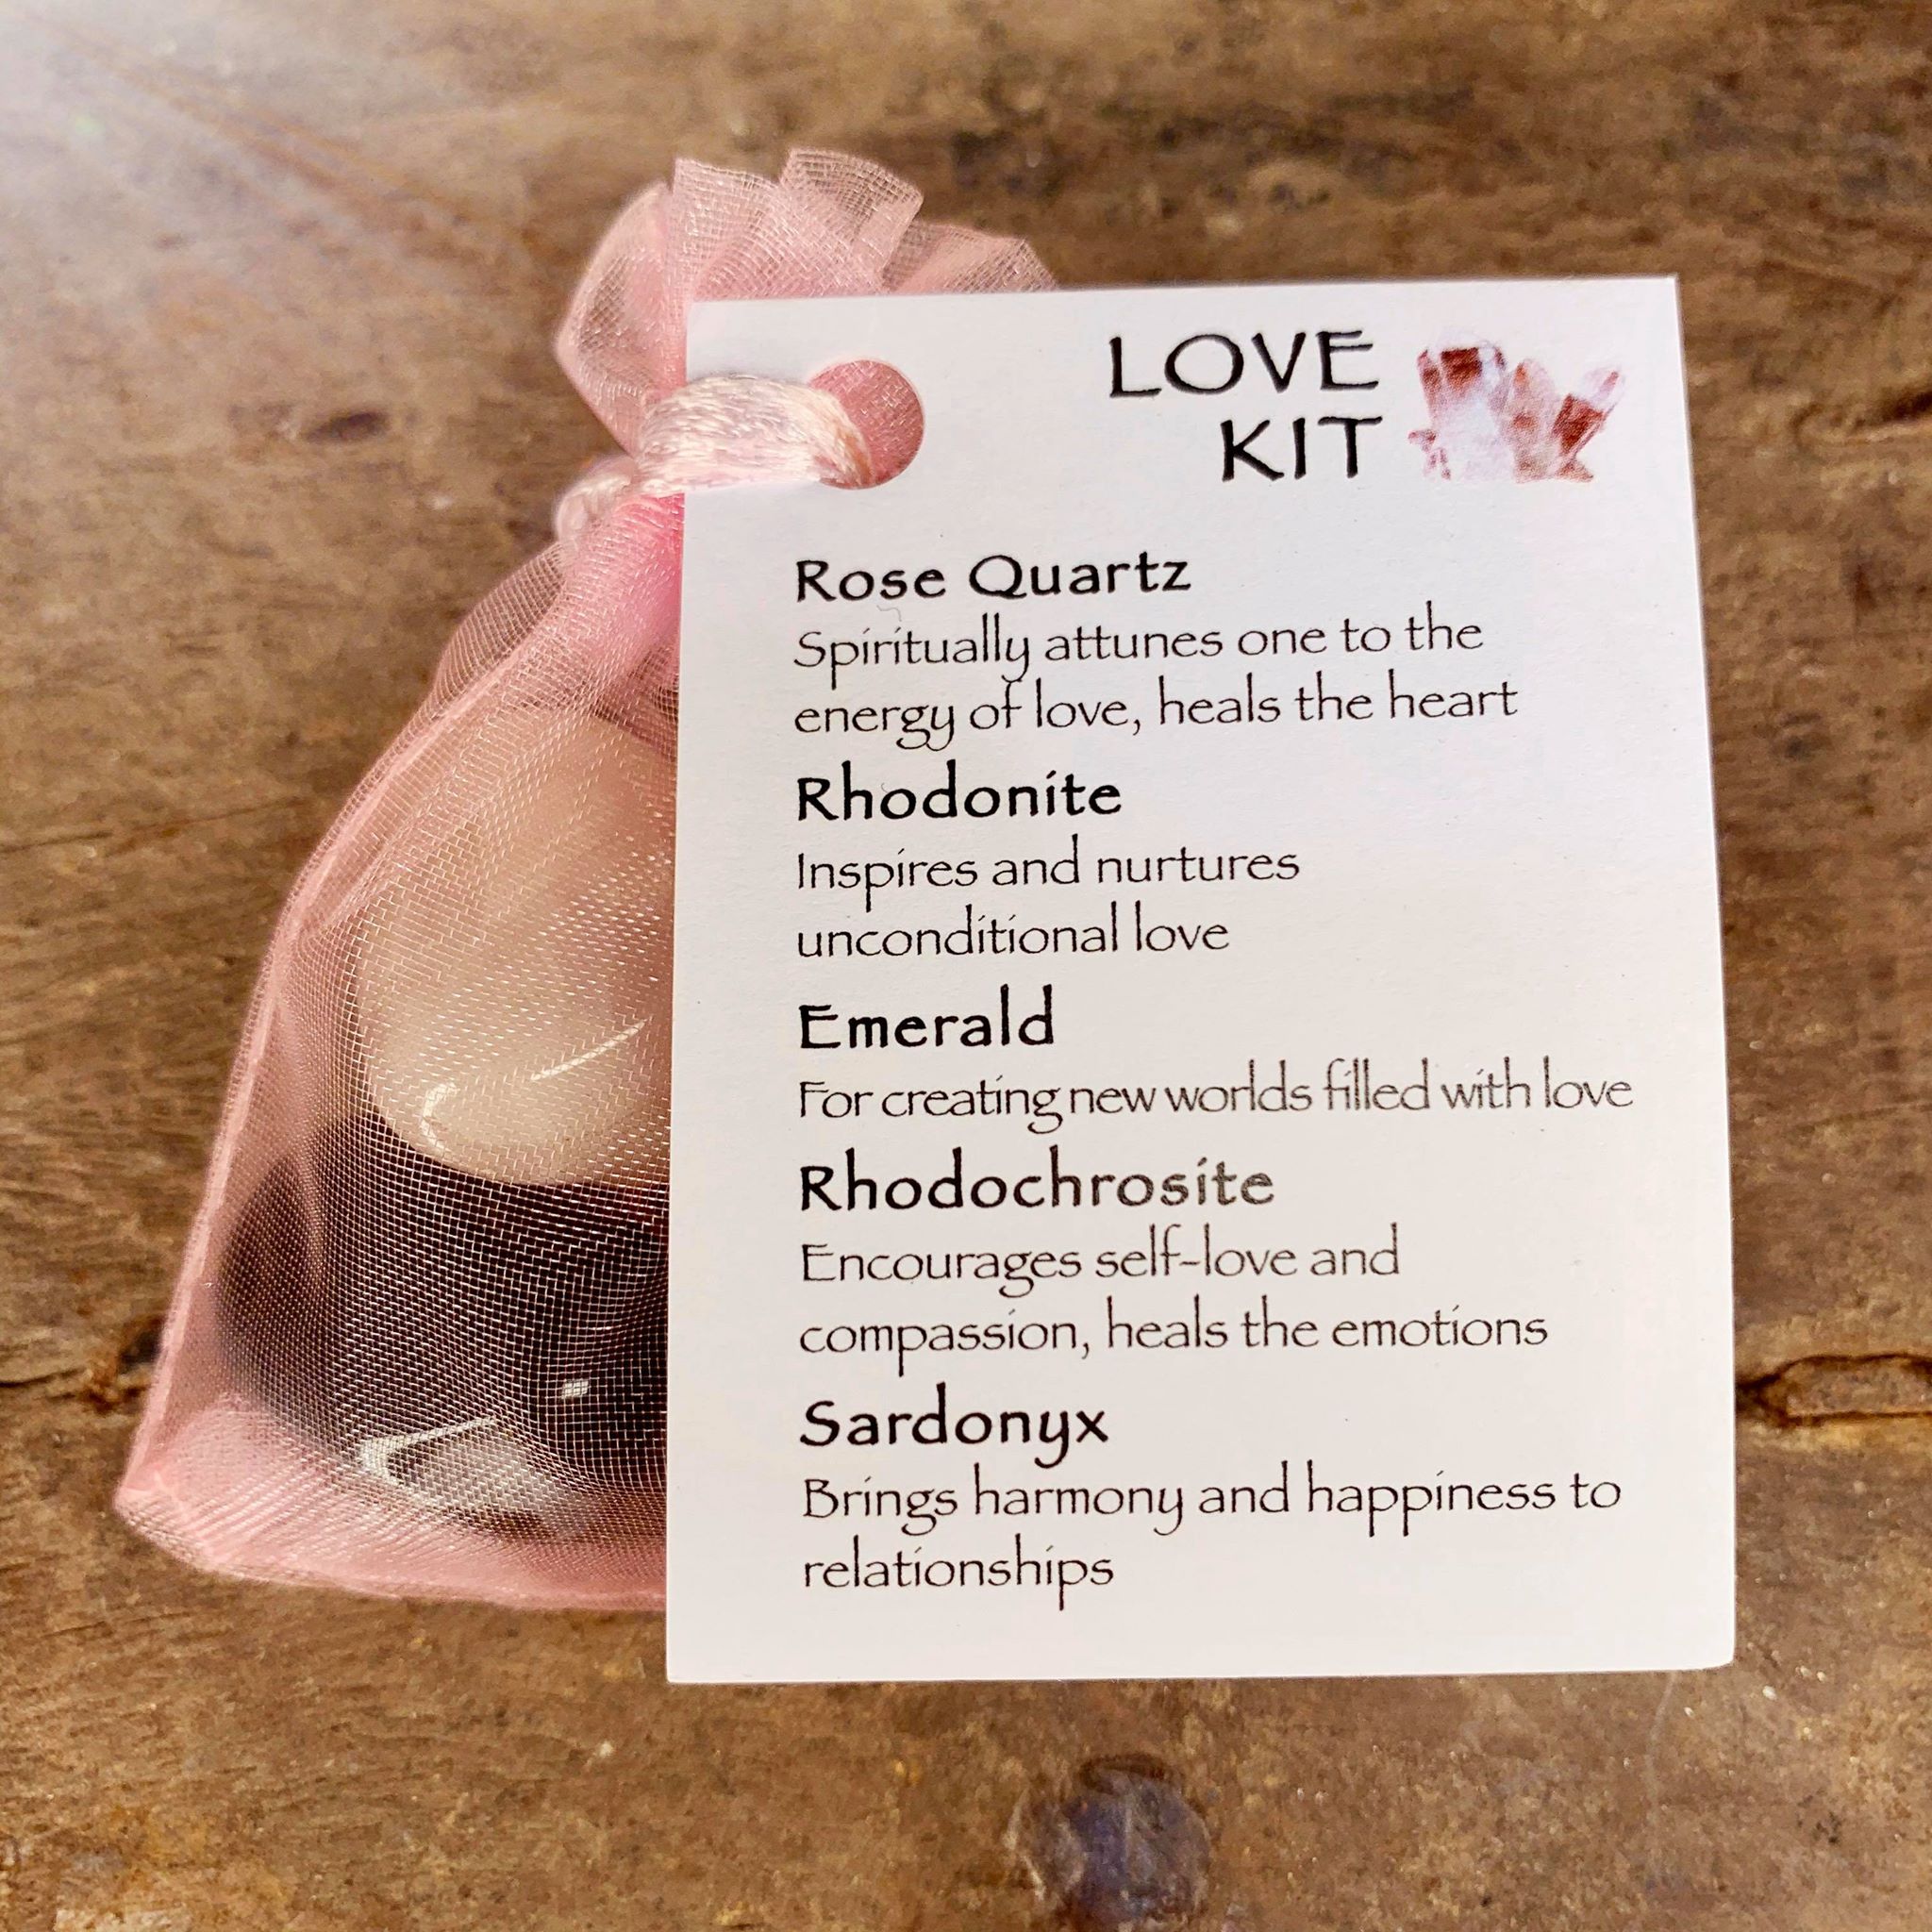 LOVE
KIT
Rose Quartz
Spiritually attunes one to the
energy of love, heals the heart
Rhodonite
Inspires and nurtures
unconditional love
Emerald
For creating new worlds filled with love
Rhodochrosite
Encourages self-love and
compassion, heals the emotions
Sardonyx
Brings harmony and happiness to
relationships